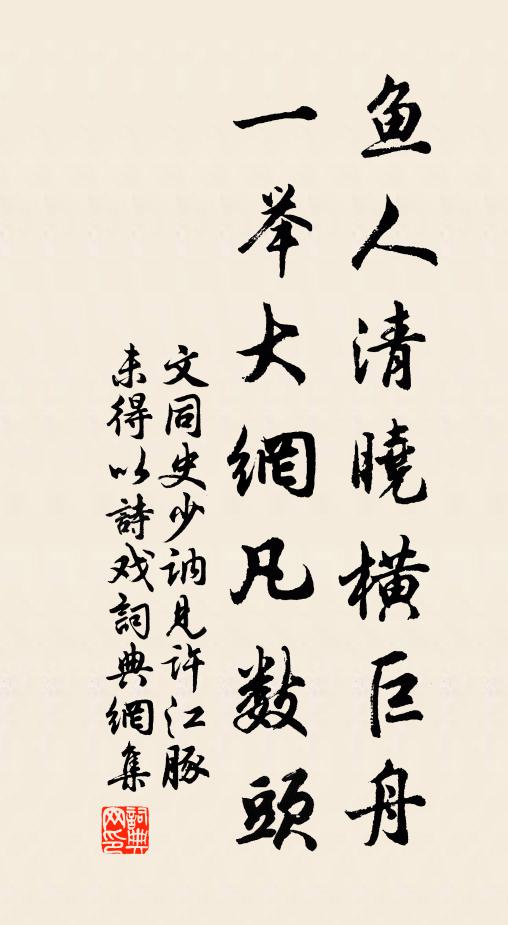 鱼人清曉橫巨舟
一举大網凡数頭
文同史少讷見許江豚
未得以詩戏詞典網集
詞典
网印